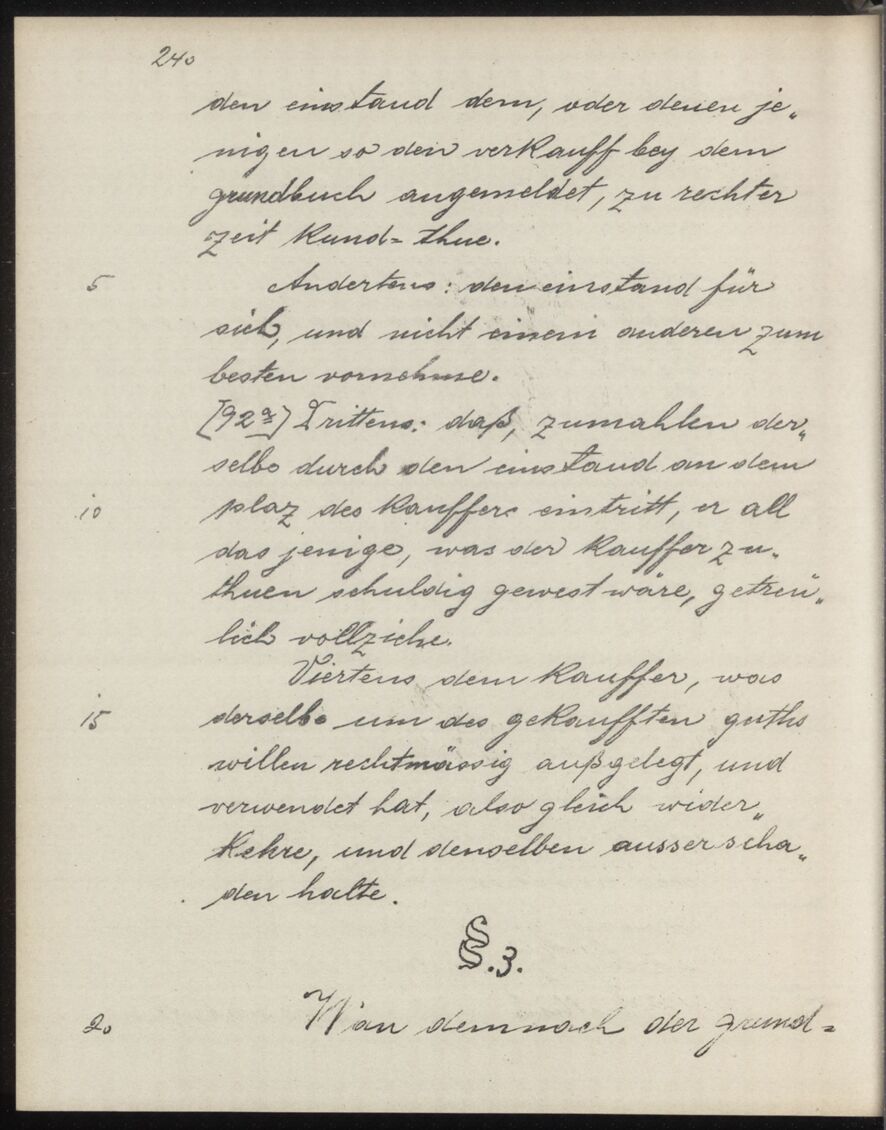 240
den einstand dem, oder denen je„
nigen so den verkauff bey dem
grundbuch angemeldet, zu rechter
zeit kund= thue.
5 Andertens: den einstand für
sich, und nicht einem anderen zum
besten vornehme.
[92ª] Drittens: daß, zumahlen der„
selbe durch den einstand an dem
10 plaz des kauffers eintritt, er all
das jenige, was der kauffer zu„
thuen schuldig gewest wäre, getreü„
lich vollziehe.
Viertens dem kauffer, was
15 derselbe um des gekaufften guths
willen rechtmässig außgelegt, und
verwendet hat, also gleich wider„
kehre, und denselben ausser scha„
den halte.
§.3.
20 Wan demnach der grund=